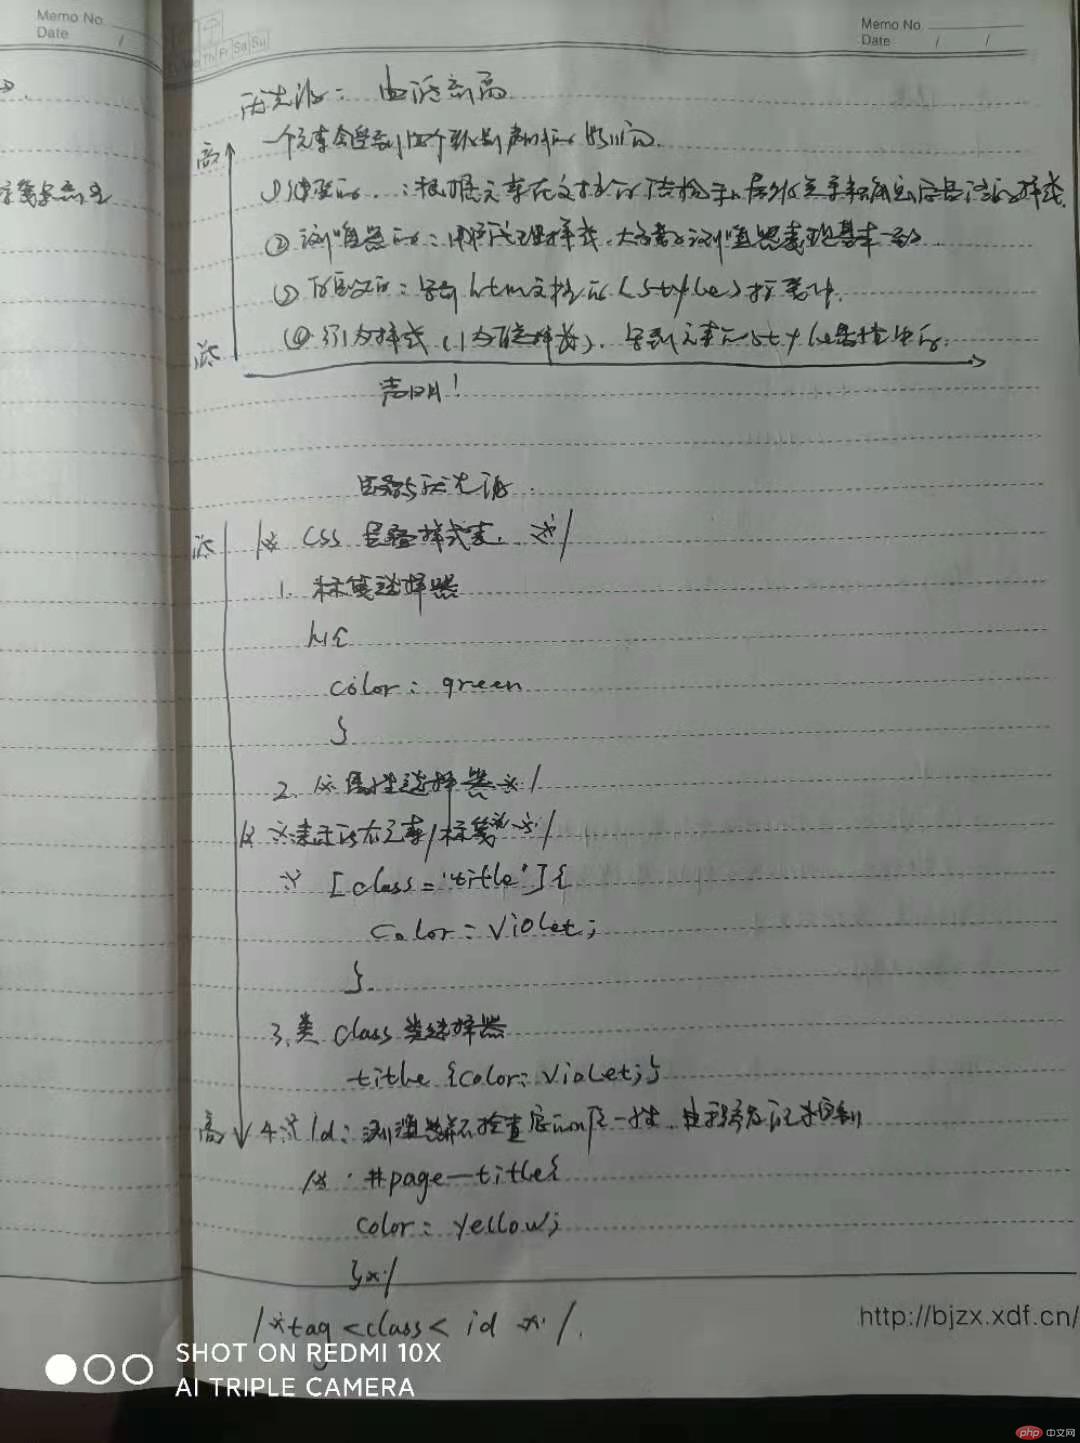 Memo No.
Date / /
Memo No.
Date /
Th Fr Sa Su
优先级: 由低到高
高
一个元素会受到四个级别声明的影响
①继承的 : 根据元素在文档的结构和层级关系来确定它最终的样式
② 浏览器的: 大多数浏览器表现基本一致
③ 写到 html文档的(style)标签中.
④ 行内样式, (内联样式), 写到元素的style属性中的.
低
声明!
优先级
低
/* CSS 层叠样式表. */
1. 标签选择器
h1{
color: green
}
2. /* 属性选择器 */
/* *表示所有元素/标签 */
* [class='title']{
color: violet;
}.
3. 类 class 类选择器
title {color: violet;}
高
4. id: 浏览器并不检查它的唯一性,
/* #page-title{
color: yellow;
}*/
/*tag<class< id */.
http://bjzx.xdf.cn/
SHOT ON REDMI 10X
AI TRIPLE CAMERA
php 中文网